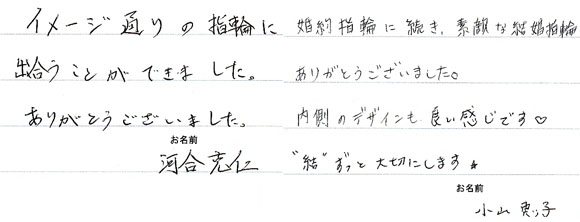 イメージ通りの指輪に
出合うことができました。
ありがとうございました。
お名前
河合克仁
婚約指輪に続き、素敵な結婚指輪
ありがとうございました。
内側のデザインも良い感じです♡
"結" ずっと大切にします★
お名前
小山 子